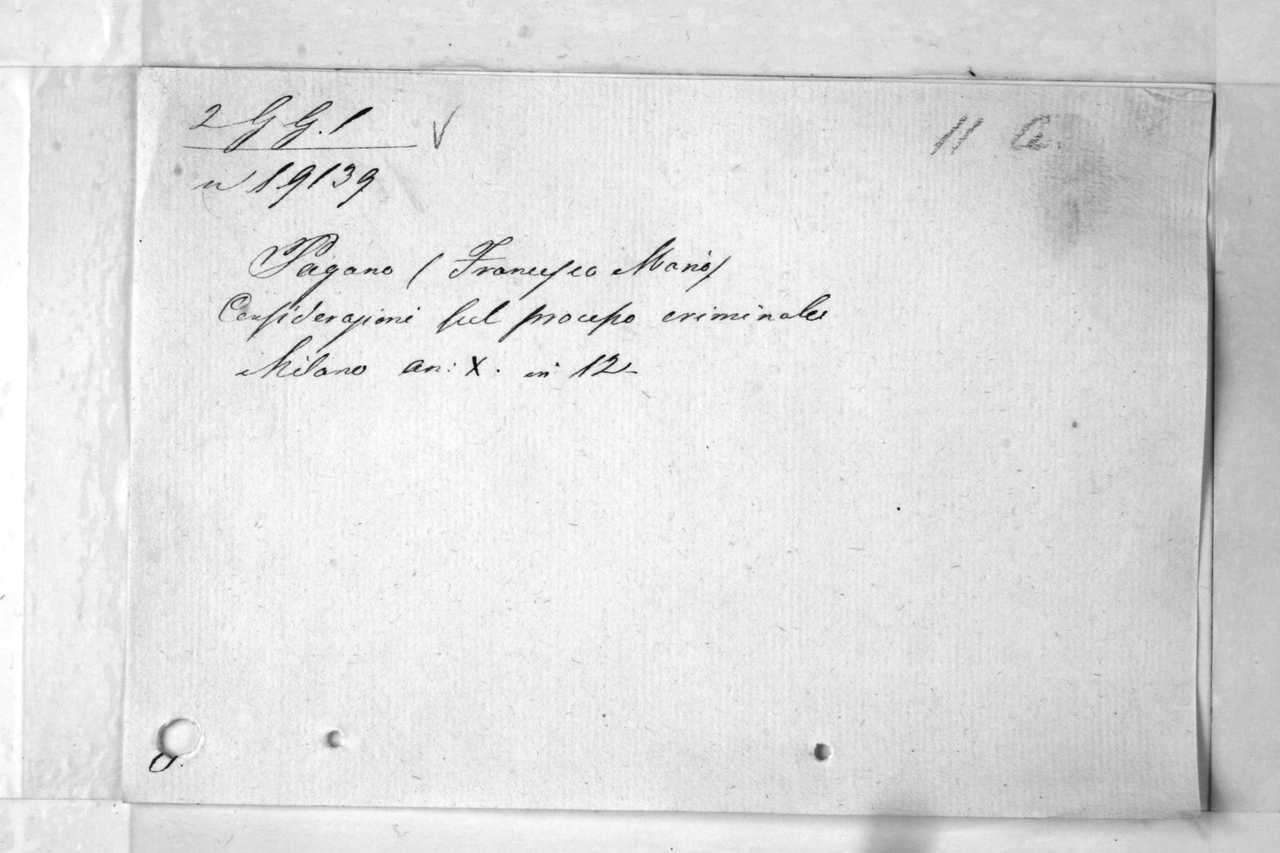 2 G G. 1 V
11 a.
n 19139
Pagano (Francesco Mario)
Considerazioni sul processo criminale
Milano an: X. in 12